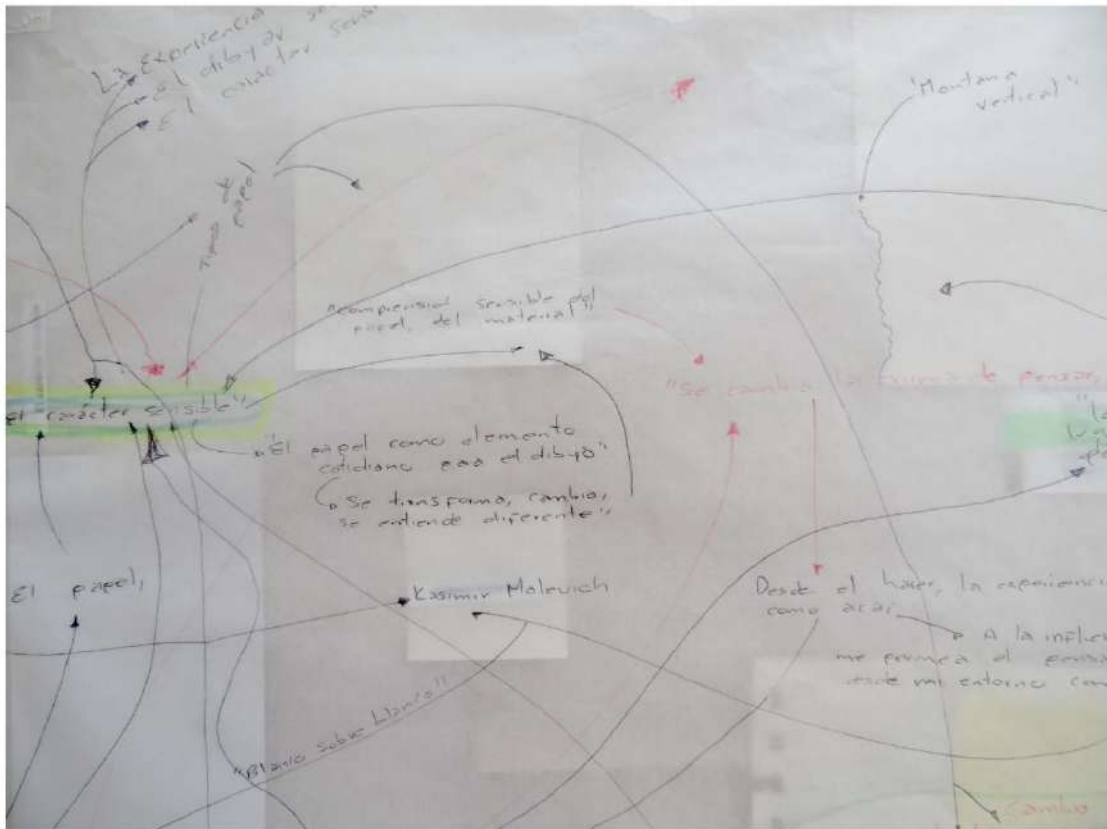 La Experiencia
El dibujar se
El carácter sensi
"Montaña
vertical"
Tipos de
papel
"comprensión sensible del
papel, del material"
"Se cambia la forma de pensar,
El carácter sensible"
"El papel como elemento
cotidiano para el dibujo"
"Se transforma, cambia,
se entiende diferente"
El papel,
Kasimir Malevich
Desde el hacer, la experienci
como acá,
A la influen
me permea el pensa
desde mi entorno com
"Blanco sobre blanco"
Cambio